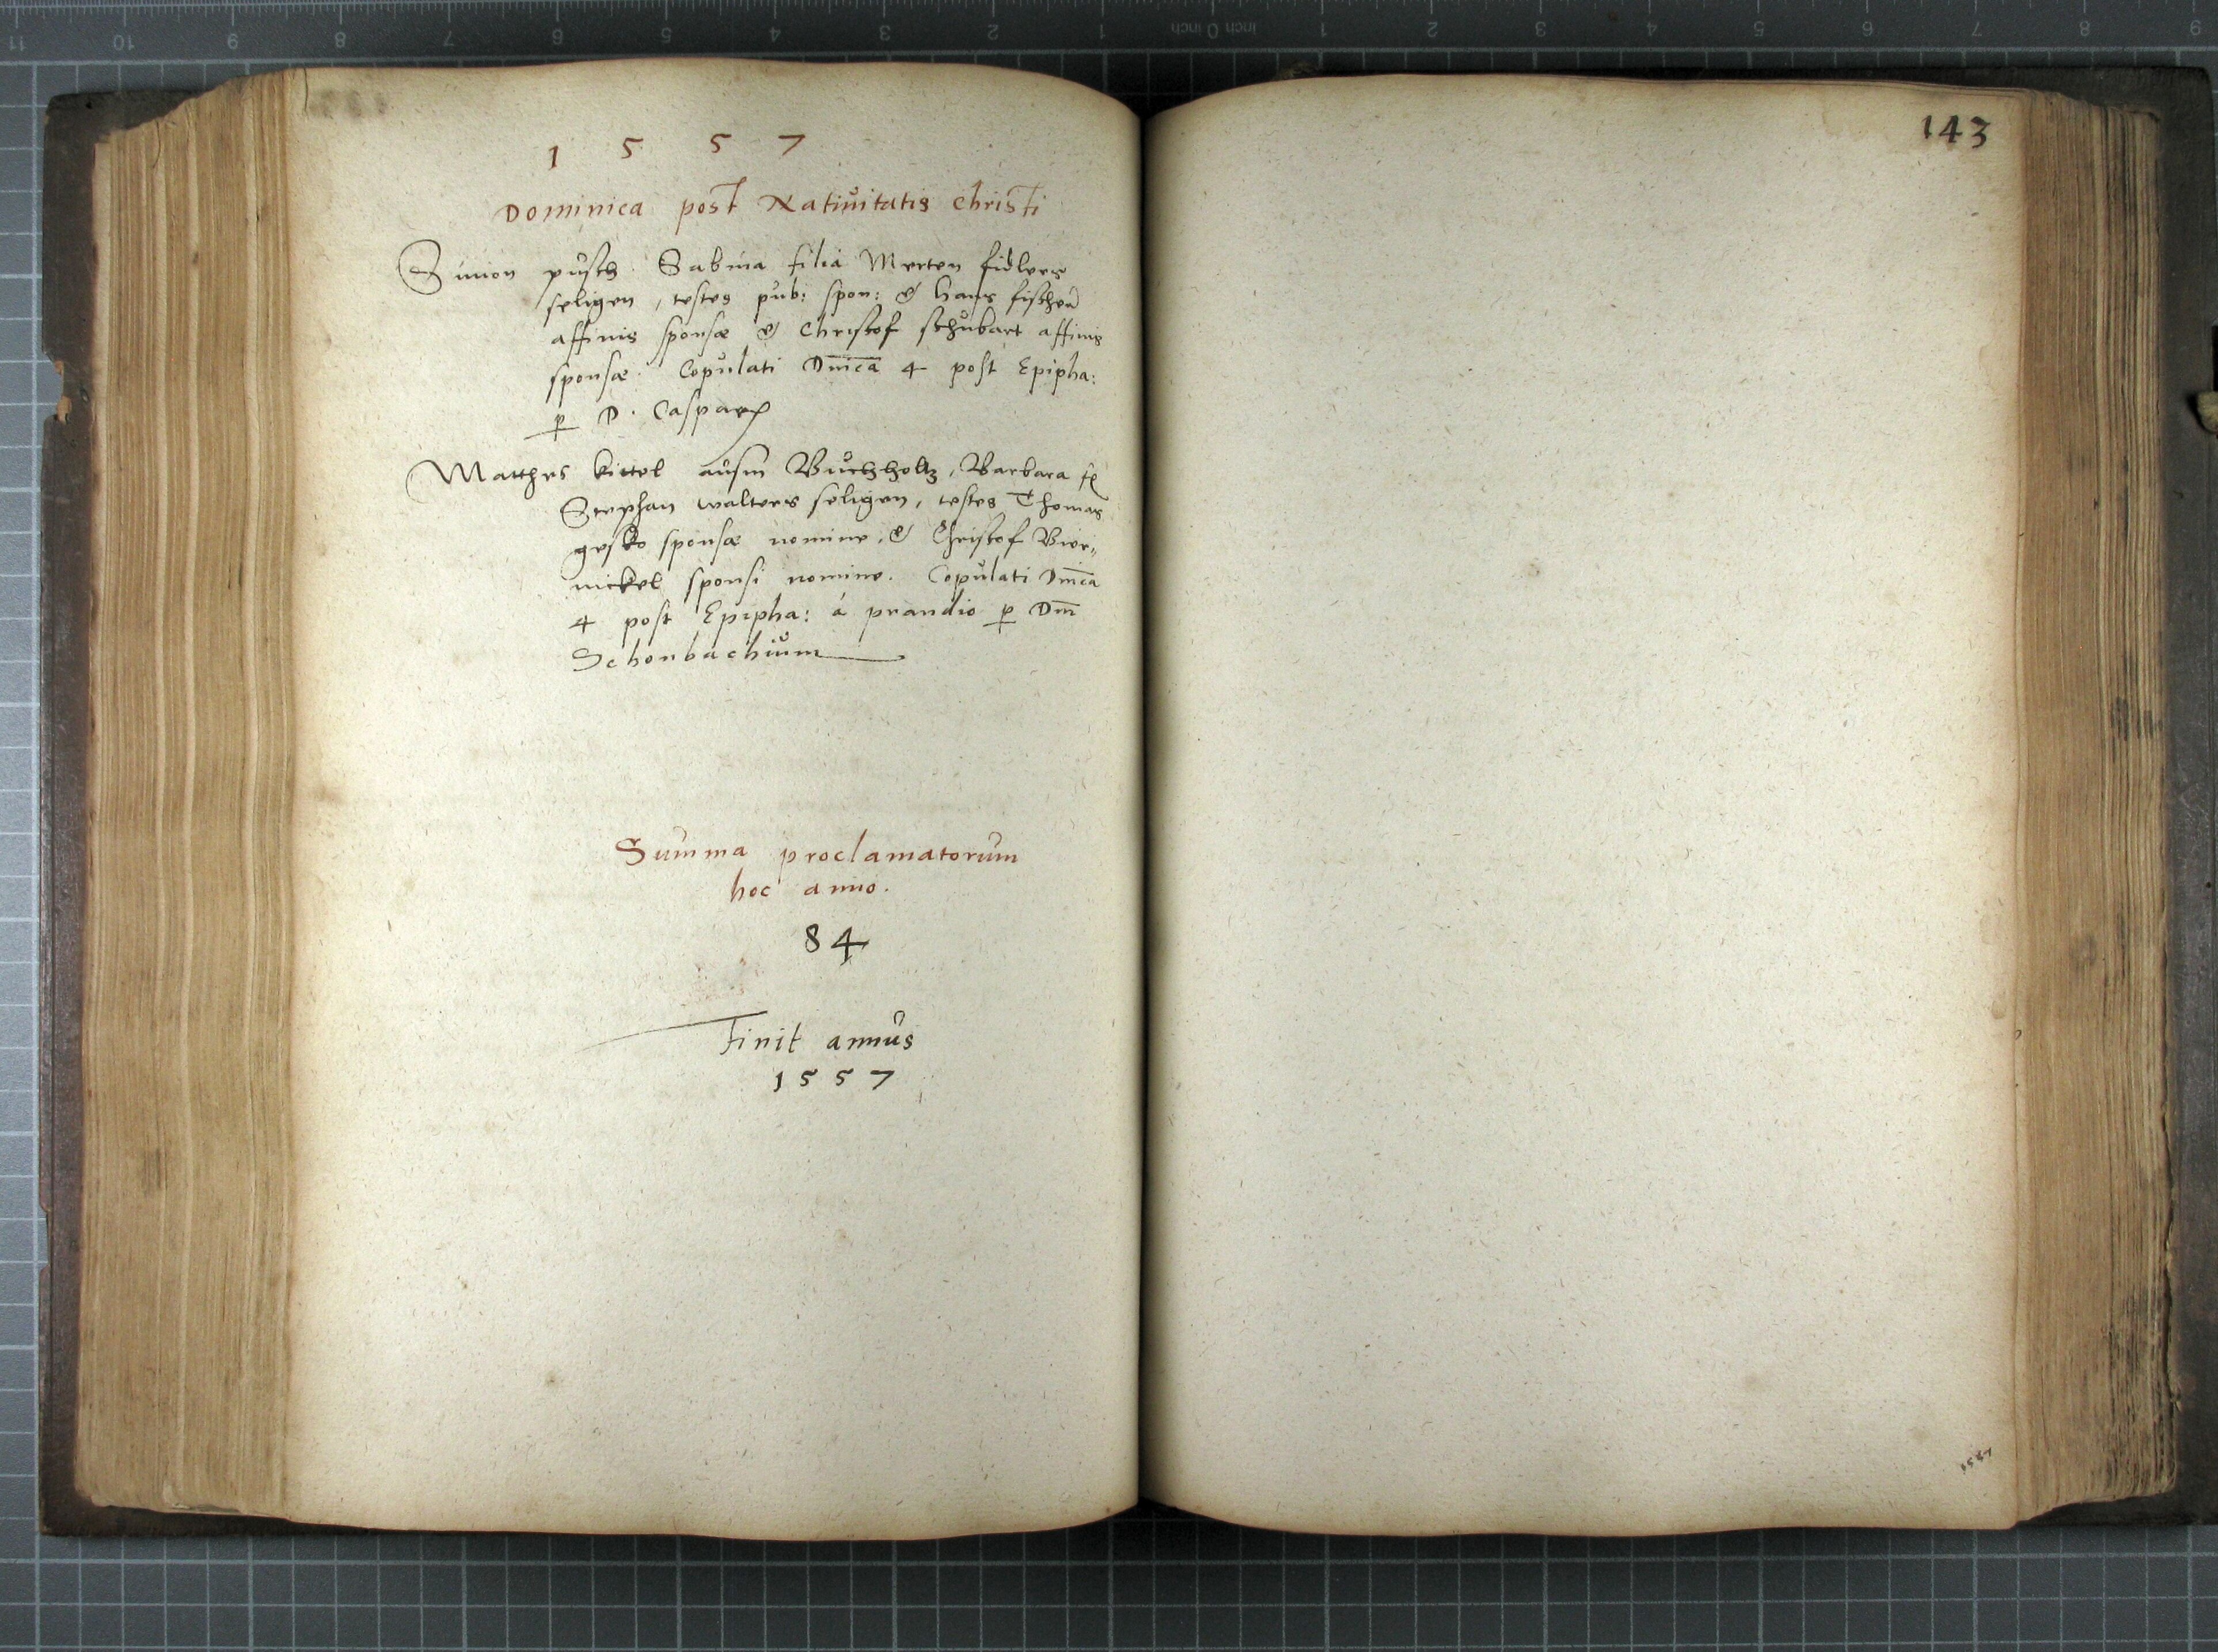 1 5 5 7
Dominica post Natiuitatis Christi
Simon pusch. Sabina filia Merten fidlers
seligen, testes pub: spon: & Hans fischer
affinis sponsæ & Christof schubart affinis
sponsæ. Copulati Dnica 4 post Epipha:
p D. Casparem
Matthes kittel ausm Buchholtz, Barbara
Stephan walters seligen, testes Thomas
sponsæ nomine, & Christof Bier=
nickel sponsi nomine. Copulati Dnica
4 post Epipha: á prandio p Dm
Schonbachium
Summa proclamatorum
hoc anno.
84
Finit annus
1557
143
1557